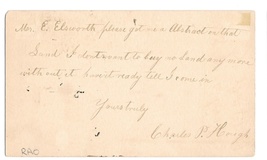 Mr. E. Ellsworth please get me a Abstract on that
Land I dont want to buy no Land any more
with out it have it ready till I come in
Yours truly
Charles P. Haugh
RAO